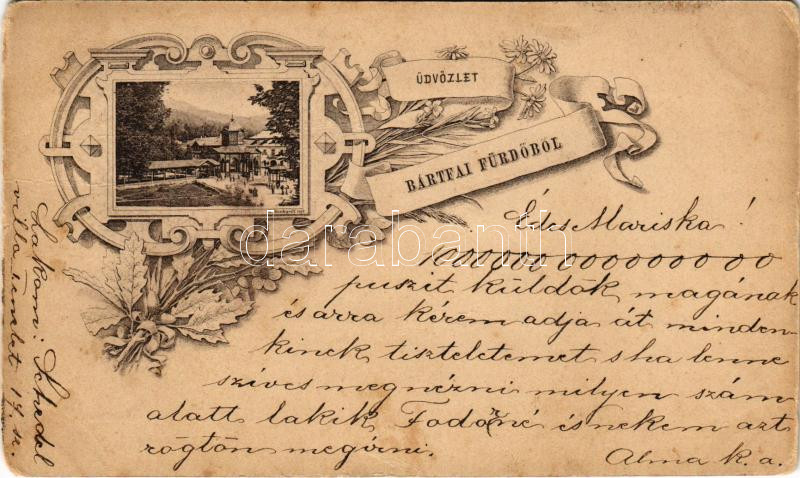 ÜDVÖZLET
BÁRTFAI FÜRDŐBŐL
darabanth
Édes Mariska!
1000000000000000
puszit küldök magának
és arra kérem adja át minden-
kinek tiszteletemet s ha lenne
szíves megnézni milyen szám
alatt lakik Fodorné és nekem azt
rögtön megírni.
Alma k. a.
Lakom: Schedel
villa emelet 17. sz.